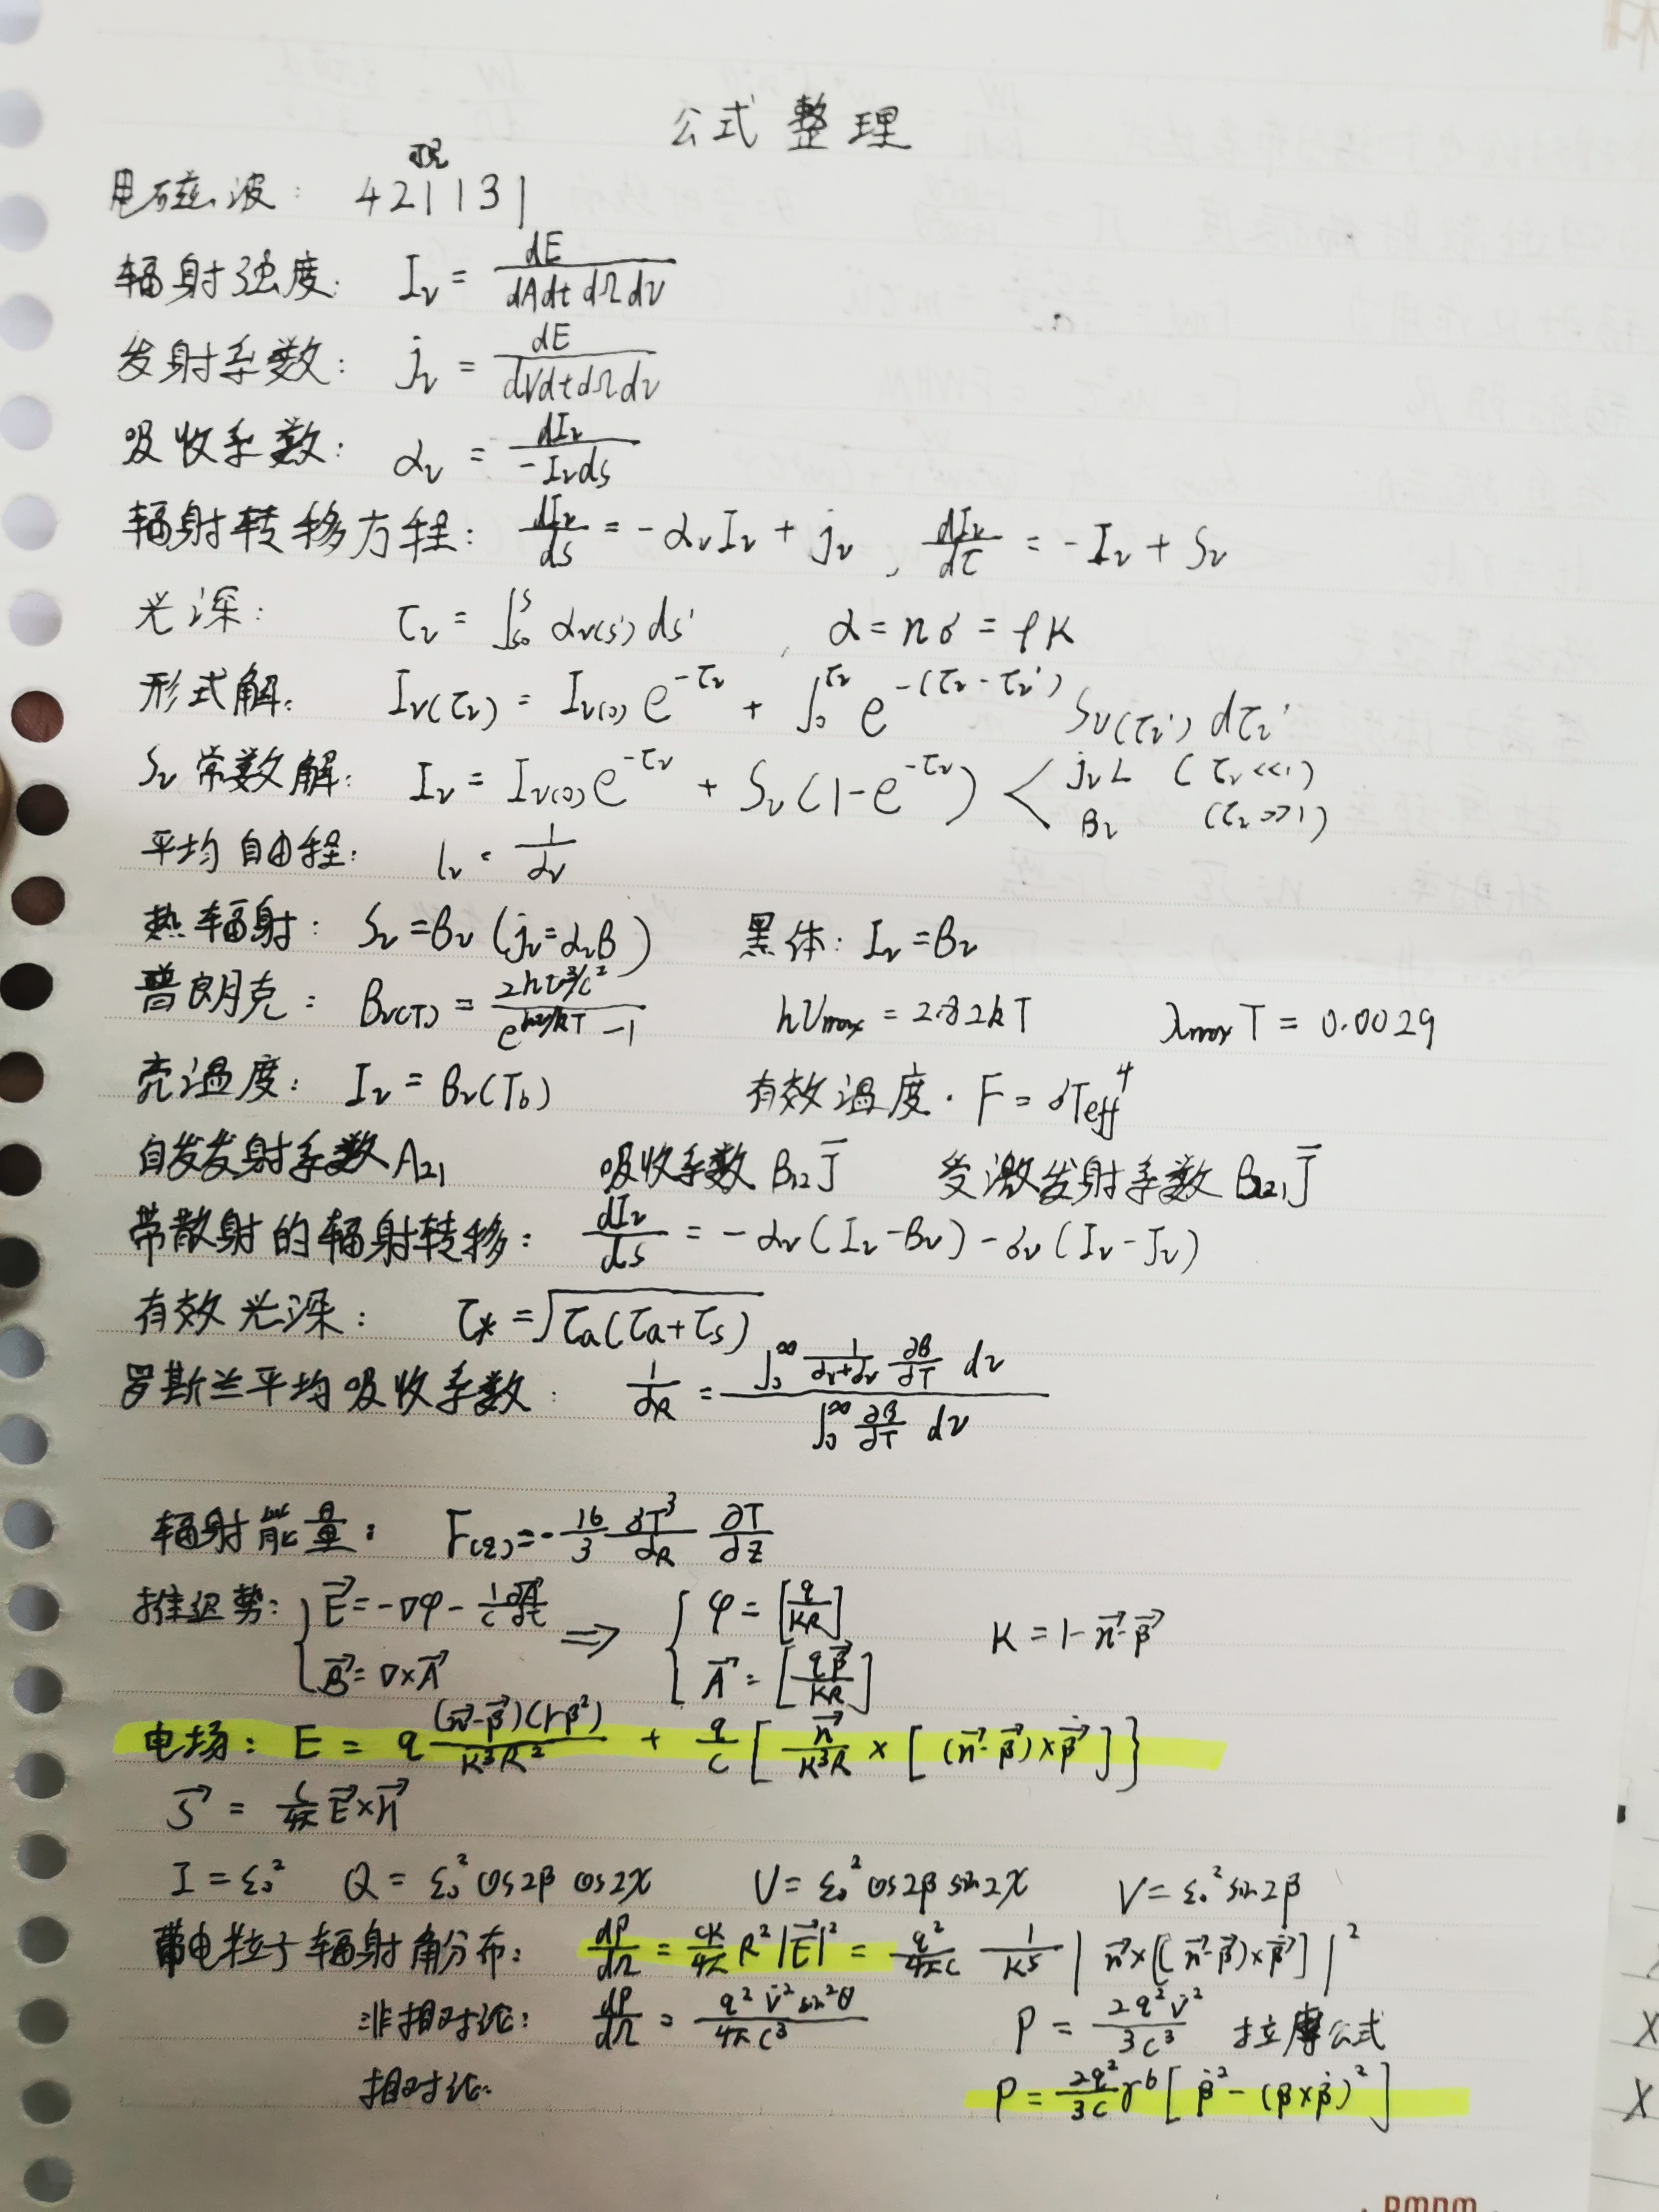 公式整理
可见
电磁波: 421131
辐射强度: I_ν = dE/(dA dt dΩ dν)
发射系数: j_ν = dE/(dV dt dΩ dν)
吸收系数: α_ν = dI_ν/(-I_ν ds)
辐射转移方程: dI_ν/ds = -α_ν I_ν + j_ν , dI_ν/dτ = -I_ν + S_ν
光深: τ_ν = ∫_{s_0}^{s} α_ν(s') ds' , α = nσ = ρκ
形式解: I_ν(τ_ν) = I_ν(0) e^{-τ_ν} + ∫_0^{τ_ν} e^{-(τ_ν - τ_ν')} S_ν(τ_ν') dτ_ν'
S_ν常数解: I_ν = I_ν(0) e^{-τ_ν} + S_ν(1-e^{-τ_ν}) < j_ν L (τ_ν<<1)
B_ν (τ_ν>>1)
平均自由程: l_ν = 1/α_ν
热辐射: S_ν = B_ν (j_ν = α_ν B) 黑体: I_ν = B_ν
普朗克: B_ν(T) = (2hν^3/c^2)/(e^{hν/kT} - 1) hν_max = 2.82kT λ_max T = 0.0029
亮温度: I_ν = B_ν(T_b) 有效温度. F = σT_eff^4
自发发射系数 A_21 吸收系数 B_12 J̄ 受激发射系数 B_21 J̄
带散射的辐射转移: dI_ν/ds = -α_ν(I_ν - B_ν) - σ_ν(I_ν - J_ν)
有效光深: τ_* = √(τ_a(τ_a + τ_s))
罗斯兰平均吸收系数: 1/α_R = (∫_0^∞ 1/(α_ν+σ_ν) ∂B/∂T dν)/(∫_0^∞ ∂B/∂T dν)
辐射能量: F(z) = -16/3 σT^3/α_R ∂T/∂z
推迟势: { E⃗ = -∇φ - 1/c ∂A⃗/∂t ⇒ { φ = [q/κR] κ = 1 - n⃗·β⃗
B⃗ = ∇×A⃗ A⃗ = [qβ⃗/κR]
电场: E = q (n⃗-β⃗)(1-β^2)/(κ^3R^2) + q/c [ n⃗/(κ^3R) × [(n⃗-β⃗)×β⃗̇]}
S⃗ = c/4π E⃗×n⃗
I = ε_0^2 Q = ε_0^2 cos2β cos2χ U = ε_0^2 cos2β sin2χ V = ε_0^2 sin2β
带电粒子辐射角分布: dP/dΩ = cκ/4π R^2|E⃗|^2 = q^2/4πc 1/κ^5 |n⃗×[(n⃗-β⃗)×β⃗̇]|^2
非相对论: dP/dΩ = q^2 v̇^2 sin^2θ/(4πc^3) P = 2q^2 v̇^2/(3c^3) 拉摩公式
相对论: P = 2q^2/(3c) γ^6 [β̇^2 - (β×β̇)^2]